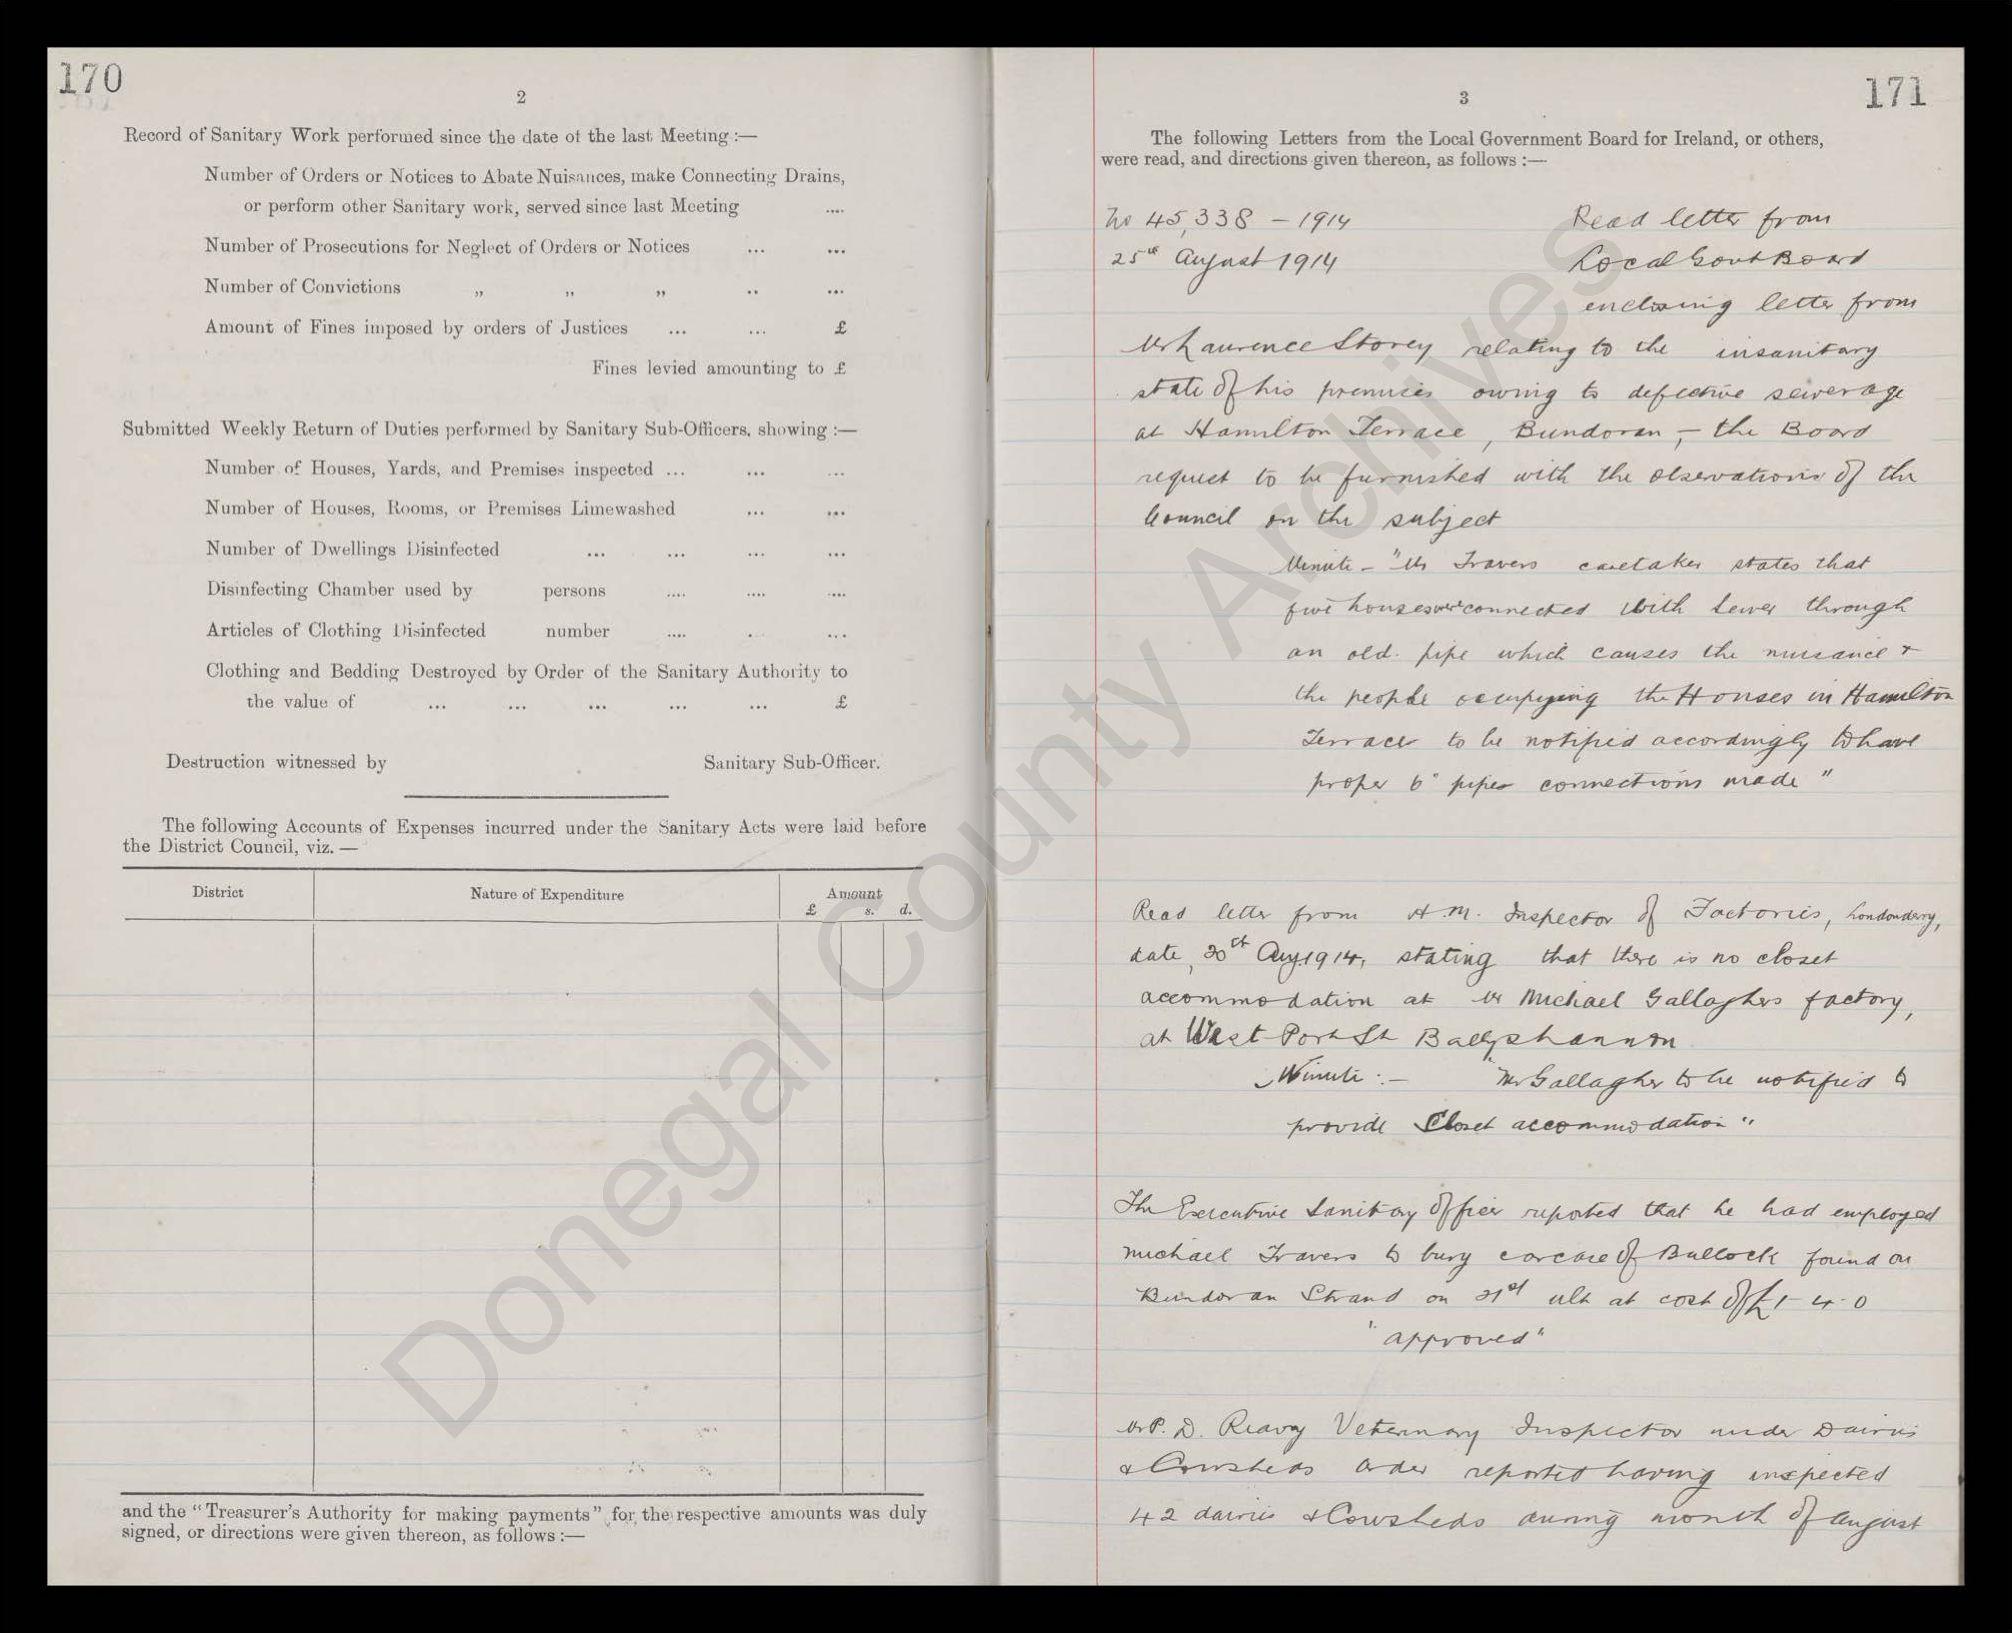 170
2
Record of Sanitary Work performed since the date of the last Meeting :—
Number of Orders or Notices to Abate Nuisances, make Connecting Drains,
or perform other Sanitary work, served since last Meeting ....
Number of Prosecutions for Neglect of Orders or Notices ... ...
Number of Convictions „ „ „ .. ...
Amount of Fines imposed by orders of Justices ... ... £
Fines levied amounting to £
Submitted Weekly Return of Duties performed by Sanitary Sub-Officers, showing :—
Number of Houses, Yards, and Premises inspected ... ... ...
Number of Houses, Rooms, or Premises Limewashed ... ...
Number of Dwellings Disinfected ... ... ... ...
Disinfecting Chamber used by persons .... .... ....
Articles of Clothing Disinfected number .... . ...
Clothing and Bedding Destroyed by Order of the Sanitary Authority to
the value of ... ... ... ... ... £
Destruction witnessed by Sanitary Sub-Officer.
The following Accounts of Expenses incurred under the Sanitary Acts were laid before
the District Council, viz. —
District Nature of Expenditure Amount
£ s. d.
and the "Treasurer's Authority for making payments" for the respective amounts was duly
signed, or directions were given thereon, as follows :—
171
3
The following Letters from the Local Government Board for Ireland, or others,
were read, and directions given thereon, as follows :—
No 45,338 – 1914 Read letter from
25th August 1914 Local Govt Board
enclosing letter from
Mr Laurence Storey relating to the insanitary
state of his premises owing to defective sewerage
at Hamilton Terrace, Bundoran, – the Board
request to be furnished with the observations of the
Council on the subject
Minute – "Mr Travers caretaker states that
five houses were connected with sewer through
an old pipe which causes the nuisance &
the people occupying the Houses in Hamilton
Terrace to be notified accordingly to have
proper 6" pipes connections made"
Read letter from H.M. Inspector of Factories, Londonderry,
date, Aug 1914, stating that there is no closet
accommodation at Mr Michael Gallaghers factory,
at West Port St Ballyshannon
Minute :– "Mr Gallagher to be notified to
provide Closet accommodation"
The Executive Sanitary Officer reported that he had employed
Michael Travers to bury carcase of Bullock found on
Bundoran Strand on ult at cost of £1-4-0
"approved"
Mr P. D. Reavy Veterinary Inspector under Dairies
& Cowsheds Order reported having inspected
42 dairies & Cowsheds during month of August
Donegal County Archives